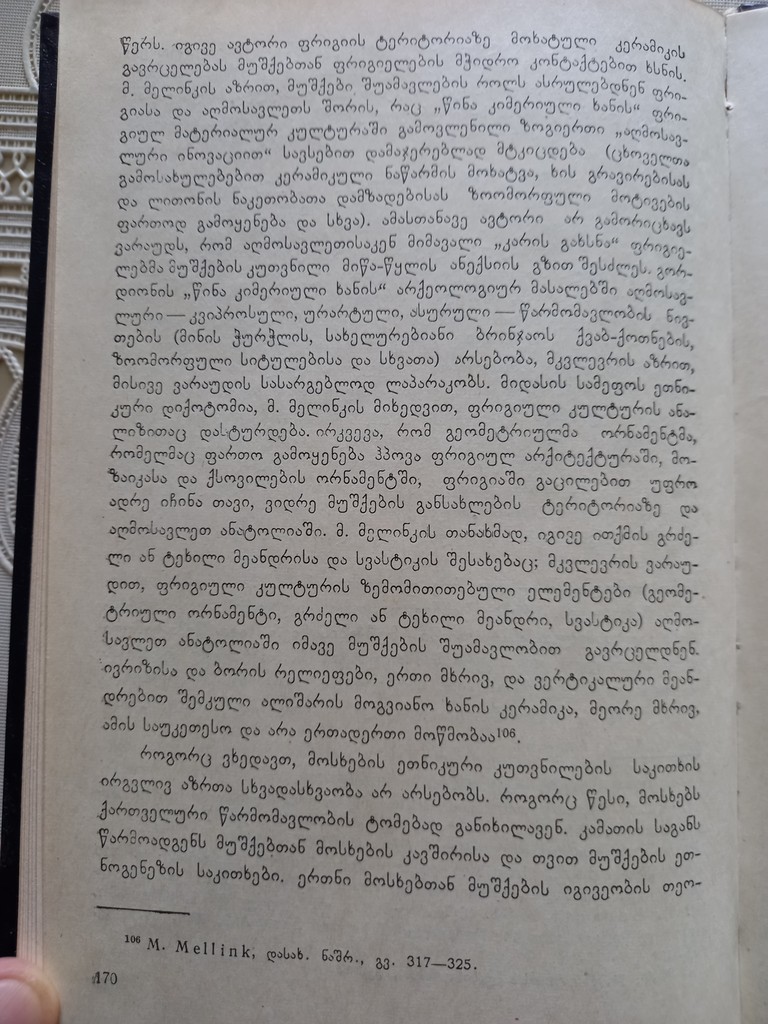 წერს. იგივე ავტორი ფრიგიის ტერიტორიაზე მოხატული კერამიკის
გავრცელებას მუშქებთან ფრიგიელების მჭიდრო კონტაქტებით ხსნის.
მ. მელინკის აზრით, მუშქები შუამავლების როლს ასრულებდნენ ფრი-
გიასა და აღმოსავლეთს შორის, რაც „წინა კიმერიული ხანის“ ფრი-
გიულ მატერიალურ კულტურაში გამოვლენილი ზოგიერთი „აღმოსავ-
ლური ინოვაციით“ სავსებით დამაჯერებლად მტკიცდება (ცხოველთა
გამოსახულებებით კერამიკული ნაწარმის მოხატვა, ხის გრავირებისას
და ლითონის ნაკეთობათა დამზადებისას ზოომორფული მოტივების
ფართოდ გამოყენება და სხვა). ამასთანავე ავტორი არ გამორიცხავს
ვარაუდს, რომ აღმოსავლეთისაკენ მიმავალი „კარის გახსნა“ ფრიგიე-
ლებმა მუშქების კუთვნილი მიწა-წყლის ანექსიის გზით შესძლეს. გორ-
დიონის „წინა კიმერიული ხანის“ არქეოლოგიურ მასალებში აღმოსავ-
ლური — კვიპროსული, ურარტული, ასურული — წარმომავლობის ნივ-
თების (მინის ჭურჭლის, სახელურებიანი ბრინჯაოს ქვაბ-ქოთნების,
ზოომორფული სიტულებისა და სხვათა) არსებობა, მკვლევრის აზრით,
მისივე ვარაუდის სასარგებლოდ ლაპარაკობს. მიდასის სამეფოს ეთნი-
კური დიქოტომია, მ. მელინკის მიხედვით, ფრიგიული კულტურის ანა-
ლიზითაც დასტურდება. ირკვევა, რომ გეომეტრიულმა ორნამენტმა,
რომელმაც ფართო გამოყენება ჰპოვა ფრიგიულ არქიტექტურაში, მო-
ზაიკასა და ქსოვილების ორნამენტში, ფრიგიაში გაცილებით უფრო
ადრე იჩინა თავი, ვიდრე მუშქების განსახლების ტერიტორიაზე და
აღმოსავლეთ ანატოლიაში. მ. მელინკის თანახმად, იგივე ითქმის გრძე-
ლი ან ტეხილი მეანდრისა და სვასტიკის შესახებაც; მკვლევრის ვარაუ-
დით, ფრიგიული კულტურის ზემომითითებული ელემენტები (გეომე-
ტრიული ორნამენტი, გრძელი ან ტეხილი მეანდრი, სვასტიკა) აღმო-
სავლეთ ანატოლიაში იმავე მუშქების შუამავლობით გავრცელდნენ.
ივრიზისა და ბორის რელიეფები, ერთი მხრივ, და ვერტიკალური მეან-
დრებით შემკული ალიშარის მოგვიანო ხანის კერამიკა, მეორე მხრივ,
ამის საუკეთესო და არა ერთადერთი მოწმობაა¹⁰⁶.
როგორც ვხედავთ, მოსხების ეთნიკური კუთვნილების საკითხის
ირგვლივ აზრთა სხვადასხვაობა არ არსებობს. როგორც წესი, მოსხებს
ქართველური წარმომავლობის ტომებად განიხილავენ. კამათის საგანს
წარმოადგენს მუშქებთან მოსხების კავშირისა და თვით მუშქების ეთ-
ნოგენეზის საკითხები. ერთნი მოსხებთან მუშქების იგივეობის თეო-
¹⁰⁶ M. Mellink, დასახ. ნაშრ., გვ. 317—325.
170